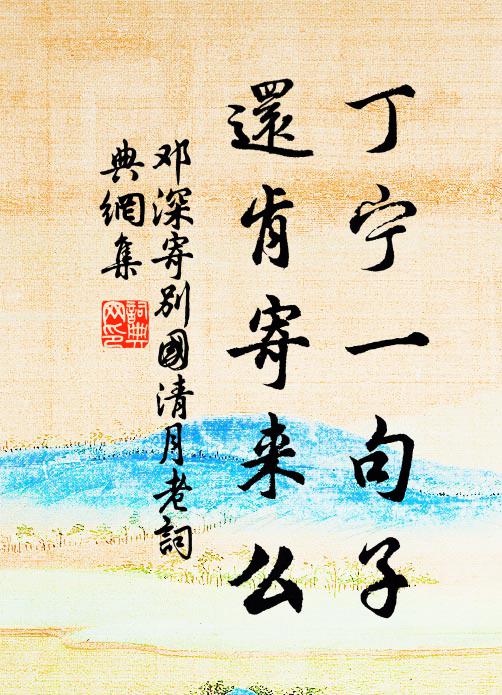 丁宁一句子
還肯寄来么
邓深寄別國清月老詞
典網集
詞典
网印